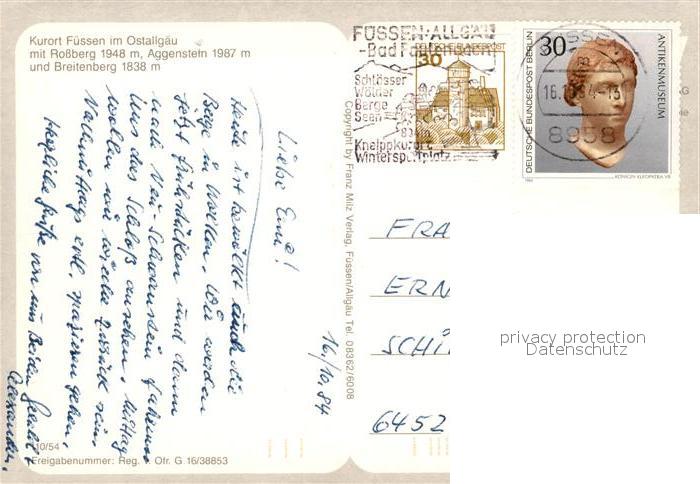 Kurort Füssen im Ostallgäu
mit Roßberg 1948 m, Aggenstein 1987 m
und Breitenberg 1838 m
16./10.84
Liebe
Heute ist bewölkt auch die
Berge in Wolken. Wir werden
jetzt frühstücken und dann
nach Neu-Schwanstein fahren
uns das Schloß ansehen. Mittag
wollen wir wieder zurück sein.
Nachmittags evtl. spazieren gehen.
Herzliche Grüße von uns Beiden
Alexander.
10/54
Freigabenummer: Reg. v. Ofr. G 16/38853
Copyright by Franz Milz Verlag, Füssen/Allgäu Tel. 08362/6008
FÜSSEN-ALLGÄU
-Bad Faulenbach-
Schlösser
Wälder
Berge
Seen
Kneippkurort
Wintersportplatz
DEUTSCHE BUNDESPOST
30
30
DEUTSCHE BUNDESPOST BERLIN
ANTIKENMUSEUM
KÖNIGIN KLEOPATRA VII
8958
FRA
ERN
SCHI
6452
privacy protection
Datenschutz